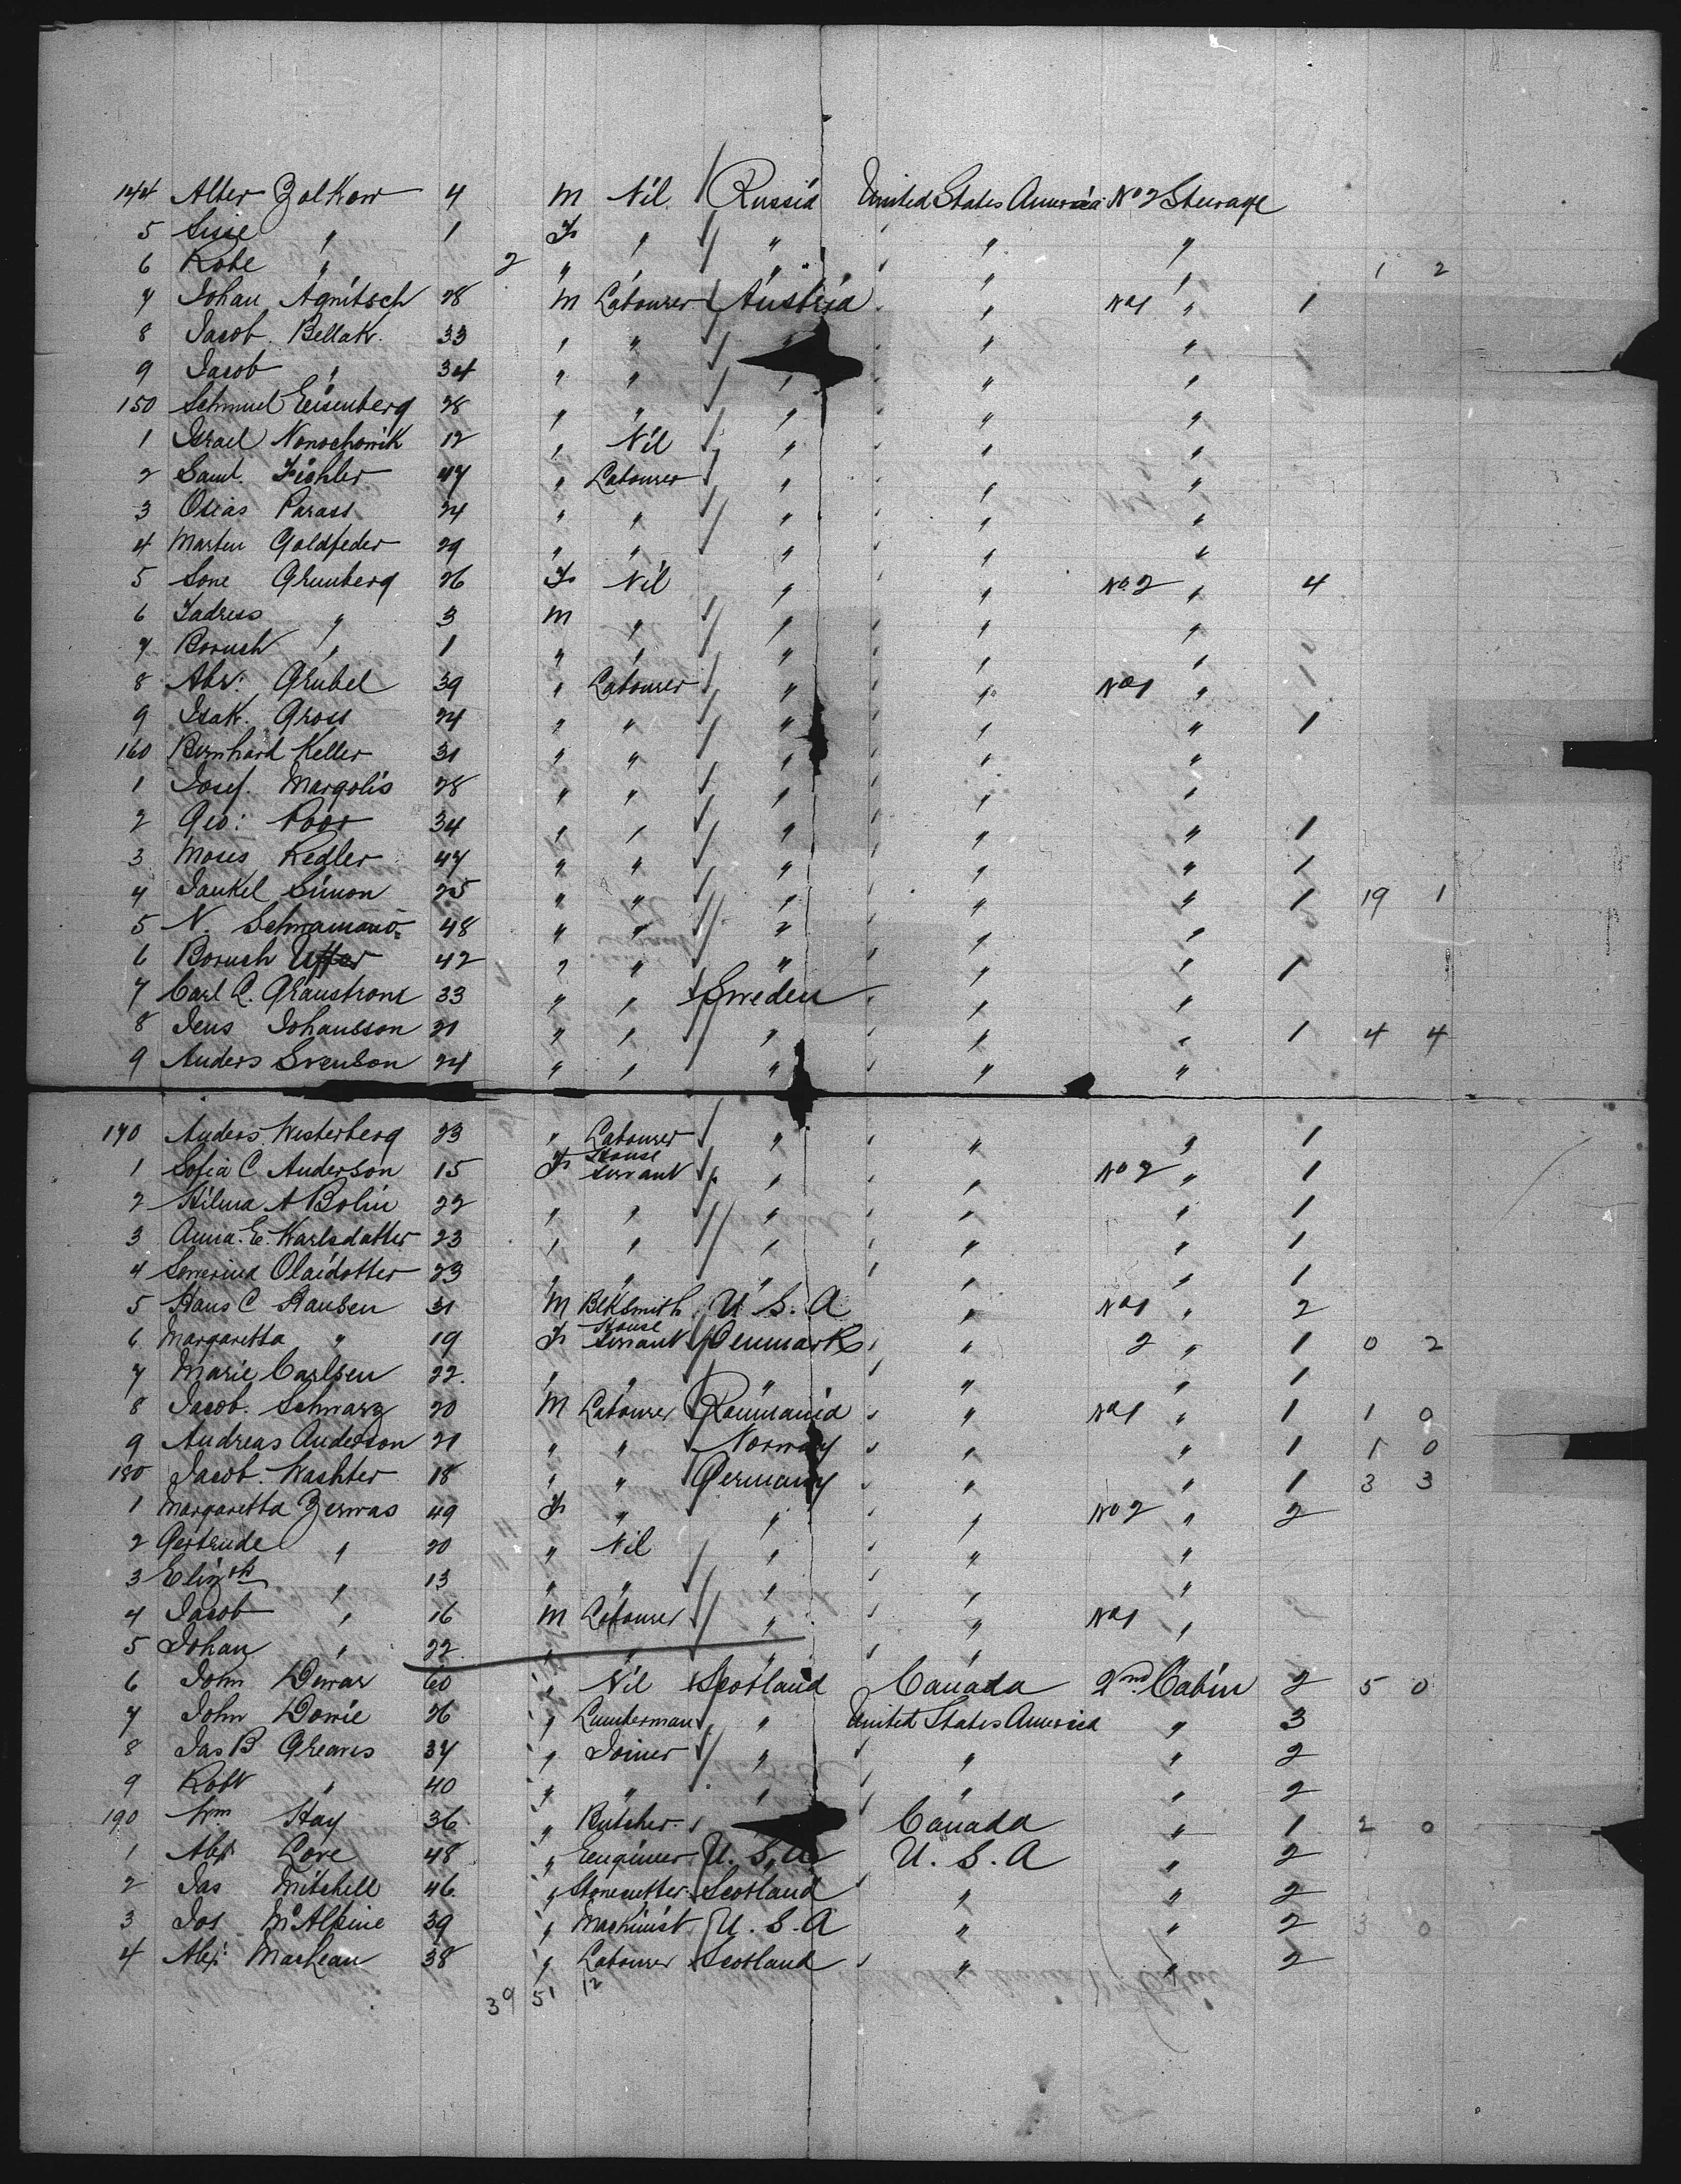 144 Alter Zolkow 4 M Nil Russia United States America No 2 Steerage
5 Sisse " 1 F " " " "
6 Kobe " 2 " " " " " 1 2
7 Johan Agnitsch 28 M Labourer Austria " No 1 " 1
8 Jacob Bellak 33 " " " " "
9 Jacob " 34 " " " " "
150 Schmuel Eisenberg 28 " " " " "
1 Israel Nonochowik 12 " Nil " " "
2 Saml. Fichler 47 " Labourer " " "
3 Osias Parass 24 " " " " "
4 Marten Goldfeder 29 " " " " "
5 Sone Grunberg 26 F Nil " " No 2 " 4
6 Fadress " 3 M " " " "
7 Boruch " 1 " " " " "
8 Abr: Grubel 39 " Labourer " " No 1 " 1
9 Isak Gross 24 " " " " " 1
160 Bernhard Keller 31 " " " " "
1 Josef Margolis 28 " " " " "
2 Geo: Poor 34 " " " " " 1
3 Moses Redler 47 " " " " " 1
4 Jankel Simon 25 " " " " " 1 19 1
5 N. 48 " " " " "
6 Boruch 42 " " " " " 1
7 Carl A. Granstrom 33 " " Sweden " "
8 Jens Johansson 21 " " " " " 1 4 4
9 Anders Svenson 24 " " " " "
170 Anders Westerberg 23 " Labourer " " " 1
1 Sofia C Anderson 15 F House Servant " " No 2 " 1
2 Hilma A Bolin 22 " " " " " 1
3 Anna E. Karlsdatter 23 " " " " " 1
4 Severina Olaidotter 23 " " " " " 1
5 Hans C Hansen 31 M Blksmith U.S.A " No 1 " 2
6 Margaretta " 19 F House Servant Denmark " 2 " 1 0 2
7 Marie Carlsen 22 " " " " " 1
8 Jacob Schwarz 20 M Labourer Roumania " No 1 " 1 1 0
9 Andreas Anderson 21 " " Norway " " 1 1 0
180 Jacob Washter 18 " " Germany " " 1 3 3
1 Margaretta Zerwas 49 F " " " No 2 " 2
2 Gertrude " 20 " Nil " " "
3 Elizth " 13 " " " " "
4 Jacob " 16 M Labourer " " No 1 "
5 Johan " 22 " " " " "
6 John Dewar 60 " Nil Scotland Canada 2nd Cabin 2 5 0
7 John Dowie 26 " Lumberman " United States America " 3
8 Jas B Greaves 37 " Joiner " " " 2
9 Robt " 40 " " " " " 2
190 Wm Hay 36 " Butcher Canada " 1 2 0
1 Alex Love 48 " Engineer U.S.A U.S.A " 2
2 Jas Mitchell 46 " Stonecutter Scotland " " 2
3 Jos McAlpine 39 " Machinist U.S.A " " 2 3 0
4 Alex: MacLean 38 " Labourer Scotland " " 2
39 51 12